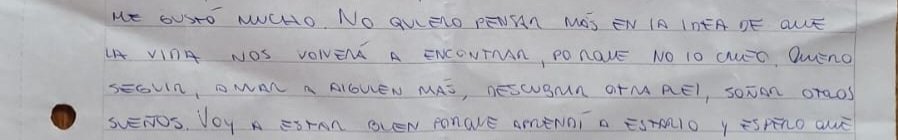 ME GUSTÓ MUCHO. NO QUIERO PENSAR MÁS EN LA IDEA DE QUE
LA VIDA NOS VOLVERÁ A ENCONTRAR, PORQUE NO LO CREO. QUIERO
SEGUIR, AMAR A ALGUIEN MÁS, DESCUBRIR OTRA PIEL, SOÑAR OTROS
SUEÑOS. VOY A ESTAR BIEN PORQUE APRENDÍ A ESTARLO Y ESPERO QUE